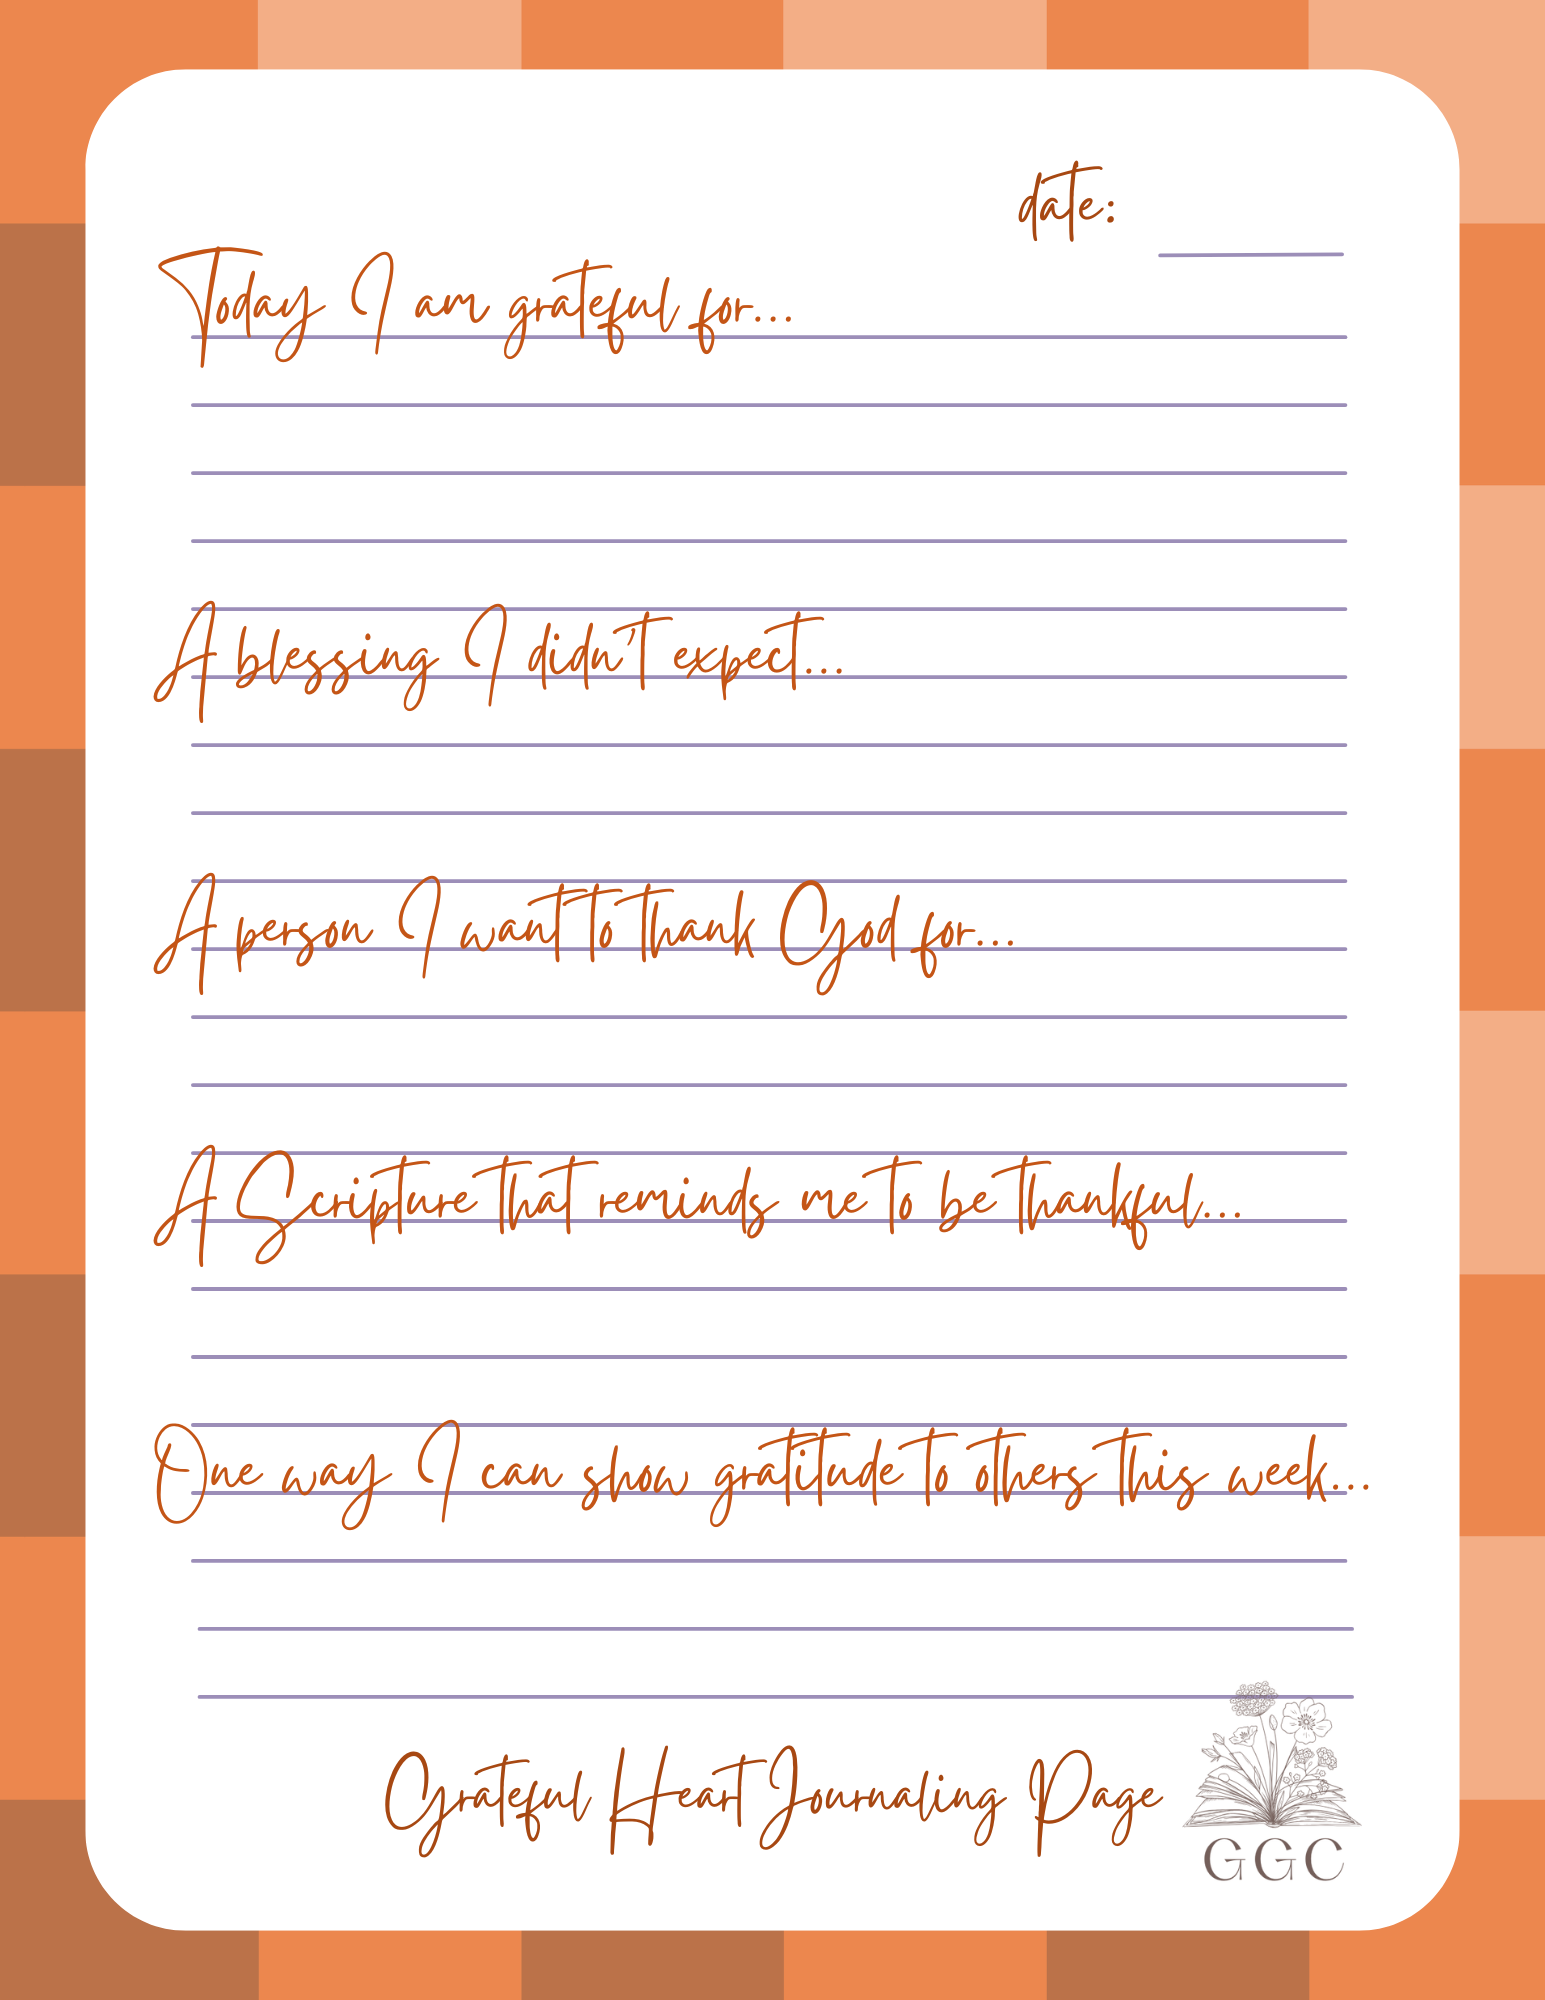 date:
Today I am grateful for...
A blessing I didn't expect...
A person I want to thank God for...
A Scripture that reminds me to be thankful...
One way I can show gratitude to others this week...
Grateful Heart Journaling Page
GGC